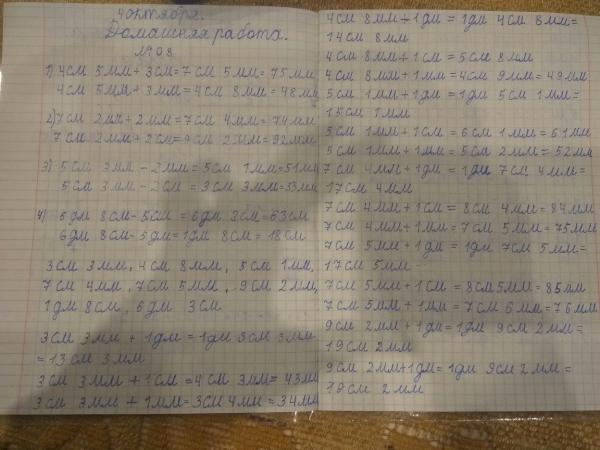 4 октября.
Домашняя работа.
№ 108
1) 4см 5мм + 3см = 7см 5мм = 75мм
4см 5мм + 3мм = 4см 8мм = 48мм
2) 7см 2мм + 2мм = 7см 4мм = 74мм
7см 2мм + 2см = 9см 2мм = 92мм
3) 5см 3мм - 2мм = 5см 1мм = 51мм
5см 3мм - 2см = 3см 3мм = 33мм
4) 6дм 8см - 5см = 6дм 3см = 63см
6дм 8см - 5дм = 1дм 8см = 18см
3см 3мм, 4см 8мм, 5см 1мм,
7см 4мм, 7см 5мм, 9см 2мм,
1дм 8см, 6дм 3см
3см 3мм + 1дм = 1дм 3см 3мм
= 13см 3мм
3см 3мм + 1см = 4см 3мм = 43мм
3см 3мм + 1мм = 3см 4мм = 34мм
4см 8мм + 1дм = 1дм 4см 8мм =
14см 8мм
4см 8мм + 1см = 5см 8мм
4см 8мм + 1мм = 4см 9мм = 49мм
5см 1мм + 1дм = 1дм 5см 1мм =
15см 1мм
5см 1мм + 1см = 6см 1мм = 61мм
5см 1мм + 1мм = 5см 2мм = 52мм
7см 4мм + 1дм = 1дм 7см 4мм =
17см 4мм
7см 4мм + 1см = 8см 4мм = 84мм
7см 4мм + 1мм = 7см 5мм = 75мм
7см 5мм + 1дм = 1дм 7см 5мм =
17см 5мм
7см 5мм + 1см = 8см 5мм = 85мм
7см 5мм + 1мм = 7см 6мм = 76мм
9см 2мм + 1дм = 1дм 9см 2мм =
19см 2мм
9см 2мм + 1дм = 1дм 9см 2мм =
19см 2мм